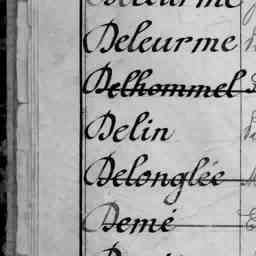 Deleurme
Delhommel
Delin
Delonglée
Demé